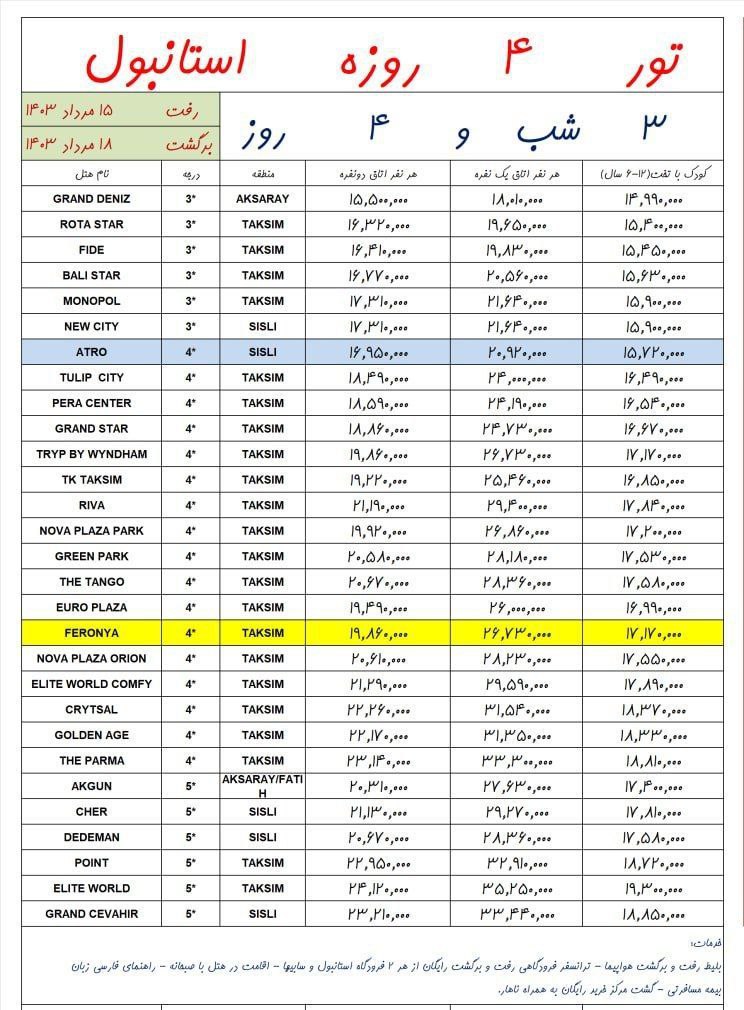 تور ۴ روزه استانبول
۳ شب و ۴ روز
رفت ۱۵ مرداد ۱۴۰۳
برگشت ۱۸ مرداد ۱۴۰۳
نام هتل درجه منطقه هر نفر اتاق دونفره هر نفر اتاق یک نفره کودک با تخت(۱۲-۶ سال)
GRAND DENIZ 3* AKSARAY ۱۵,۵۰۰,۰۰۰ ۱۸,۰۱۰,۰۰۰ ۱۴,۹۹۰,۰۰۰
ROTA STAR 3* TAKSIM ۱۶,۳۲۰,۰۰۰ ۱۹,۶۵۰,۰۰۰ ۱۵,۴۰۰,۰۰۰
FIDE 3* TAKSIM ۱۶,۴۱۰,۰۰۰ ۱۹,۸۳۰,۰۰۰ ۱۵,۴۵۰,۰۰۰
BALI STAR 3* TAKSIM ۱۶,۷۷۰,۰۰۰ ۲۰,۵۶۰,۰۰۰ ۱۵,۶۳۰,۰۰۰
MONOPOL 3* TAKSIM ۱۷,۳۱۰,۰۰۰ ۲۱,۶۴۰,۰۰۰ ۱۵,۹۰۰,۰۰۰
NEW CITY 3* SISLI ۱۷,۳۱۰,۰۰۰ ۲۱,۶۴۰,۰۰۰ ۱۵,۹۰۰,۰۰۰
ATRO 4* SISLI ۱۶,۹۵۰,۰۰۰ ۲۰,۹۲۰,۰۰۰ ۱۵,۷۲۰,۰۰۰
TULIP CITY 4* TAKSIM ۱۸,۴۹۰,۰۰۰ ۲۴,۰۰۰,۰۰۰ ۱۶,۴۹۰,۰۰۰
PERA CENTER 4* TAKSIM ۱۸,۵۹۰,۰۰۰ ۲۴,۱۹۰,۰۰۰ ۱۶,۵۴۰,۰۰۰
GRAND STAR 4* TAKSIM ۱۸,۸۶۰,۰۰۰ ۲۴,۷۳۰,۰۰۰ ۱۶,۶۷۰,۰۰۰
TRYP BY WYNDHAM 4* TAKSIM ۱۹,۸۶۰,۰۰۰ ۲۶,۷۳۰,۰۰۰ ۱۷,۱۷۰,۰۰۰
TK TAKSIM 4* TAKSIM ۱۹,۲۲۰,۰۰۰ ۲۵,۴۶۰,۰۰۰ ۱۶,۸۵۰,۰۰۰
RIVA 4* TAKSIM ۲۱,۱۹۰,۰۰۰ ۲۹,۴۰۰,۰۰۰ ۱۷,۸۴۰,۰۰۰
NOVA PLAZA PARK 4* TAKSIM ۱۹,۹۲۰,۰۰۰ ۲۶,۸۶۰,۰۰۰ ۱۷,۲۰۰,۰۰۰
GREEN PARK 4* TAKSIM ۲۰,۵۸۰,۰۰۰ ۲۸,۱۸۰,۰۰۰ ۱۷,۵۳۰,۰۰۰
THE TANGO 4* TAKSIM ۲۰,۶۷۰,۰۰۰ ۲۸,۳۶۰,۰۰۰ ۱۷,۵۸۰,۰۰۰
EURO PLAZA 4* TAKSIM ۱۹,۴۹۰,۰۰۰ ۲۶,۰۰۰,۰۰۰ ۱۶,۹۹۰,۰۰۰
FERONYA 4* TAKSIM ۱۹,۸۶۰,۰۰۰ ۲۶,۷۳۰,۰۰۰ ۱۷,۱۷۰,۰۰۰
NOVA PLAZA ORION 4* TAKSIM ۲۰,۶۱۰,۰۰۰ ۲۸,۲۳۰,۰۰۰ ۱۷,۵۵۰,۰۰۰
ELITE WORLD COMFY 4* TAKSIM ۲۱,۲۹۰,۰۰۰ ۲۹,۵۹۰,۰۰۰ ۱۷,۸۹۰,۰۰۰
CRYTSAL 4* TAKSIM ۲۲,۲۶۰,۰۰۰ ۳۱,۵۴۰,۰۰۰ ۱۸,۳۷۰,۰۰۰
GOLDEN AGE 4* TAKSIM ۲۲,۱۷۰,۰۰۰ ۳۱,۳۵۰,۰۰۰ ۱۸,۳۳۰,۰۰۰
THE PARMA 4* TAKSIM ۲۳,۱۴۰,۰۰۰ ۳۳,۳۰۰,۰۰۰ ۱۸,۸۱۰,۰۰۰
AKGUN 5* AKSARAY/FATIH ۲۰,۳۱۰,۰۰۰ ۲۷,۶۳۰,۰۰۰ ۱۷,۴۰۰,۰۰۰
CHER 5* SISLI ۲۱,۱۳۰,۰۰۰ ۲۹,۲۷۰,۰۰۰ ۱۷,۸۱۰,۰۰۰
DEDEMAN 5* SISLI ۲۰,۶۷۰,۰۰۰ ۲۸,۳۶۰,۰۰۰ ۱۷,۵۸۰,۰۰۰
POINT 5* TAKSIM ۲۲,۹۵۰,۰۰۰ ۳۲,۹۱۰,۰۰۰ ۱۸,۷۲۰,۰۰۰
ELITE WORLD 5* TAKSIM ۲۴,۱۲۰,۰۰۰ ۳۵,۲۵۰,۰۰۰ ۱۹,۳۰۰,۰۰۰
GRAND CEVAHIR 5* SISLI ۲۳,۲۱۰,۰۰۰ ۳۳,۴۴۰,۰۰۰ ۱۸,۸۵۰,۰۰۰
خدمات:
بلیط رفت و برگشت هواپیما - ترانسفر فرودگاهی رفت و برگشت رایگان از هر ۲ فرودگاه استانبول و سابیها - اقامت در هتل با صبحانه - راهنمای فارسی زبان
بیمه مسافرتی - گشت مرکز خرید رایگان به همراه ناهار.